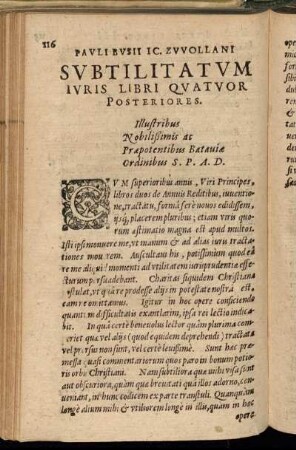 116
PAVLI BVSII IC. ZVVOLLANI
SVBTILITATVM
IVRIS LIBRI QVATVOR
POSTERIORES.
Illustribus
Nobilissimis ac
Præpotentibus Batauiæ
Ordinibus S. P. A. D.
QVM superioribus annis, Viri Principes,
libros duos de Annuis Reditibus, inuentio-
ne, tractatu, formâ ferè nouos edidissem,
ijsq́; placerem pluribus; etiam viris quo-
rum æstimatio magna est apud multos.
Isti ipsi monuere me, vt manum & ad alias iuris tracta-
tiones mouerem. Auscultam his, potissimum quod ea
re me aliquid momenti ad vtilitatem iurisprudentiæ effe-
cturum persuadebant. Charitas siquidem Christiana
postulat, vt quâ re prodesse alijs in potestate nostrâ est,
eam ne omittamus. Igitur in hoc opere consciendo
quantum difficultatis exantlarim, ipsa rei lectio indica-
bit. In quâ certè beneuolus lector quàm plurima com-
periet quæ vel alijs (quod equidem deprehendi) tractata
vel prorsus non sunt, vel certè leuissimè. Sunt hæc pre-
messa quasi commentariorum quos paro in bonum potio-
ris orbis Christiani. Nam subtiliora quæ mihi visa sunt
aut obscuriora, quàm qua breuitati quâ illos adorno, con-
ueniant, in hunc codicem ex parte transtuli. Quanquam
longè alium mihi & vtiliorem longè in illis, quàm in hoc
opere